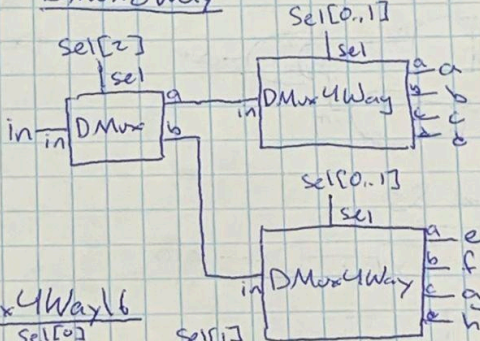 Sel[0..1]
Sel[2]
sel
sel
a
a
in
in
DMux
a
b
in
DMux4Way
b
b
c
c
d
d
Sel[0..1]
sel
in
DMux4Way
a
e
b
f
c
g
d
h
x4Way16
Sel[0]
Sel[1]